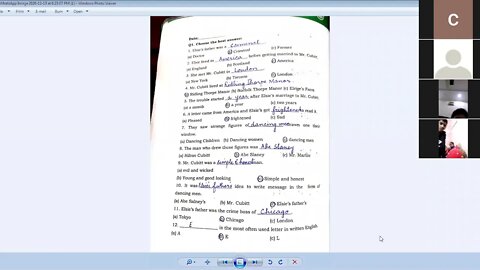 Date:
Q1. Choose the best answer:
1. Elsie's father was a criminal
(a) Doctor (b) Criminal (c) Farmer
2. Elsie lived in America before getting married to Mr. Cubitt.
(a) England (b) Scotland (c) America
3. She met Mr. Cubitt in London
(a) New York (b) Toronto (c) London
4. Mr. Cubitt lived at Ridling Thorpe Manor
(a) Riding Thorpe Manor (b) Norfolk Thorpe Manor (c) Elrige's Farm
5. The trouble started a year after Elsie's marriage to Mr. Cubitt.
(a) a month (b) a year (c) two years
6. A letter came from America and Elsie's got frightened to read it
(a) Pleased (b) frightened (c) Sad
7. They saw strange figures of dancing men near their
window.
(a) Dancing Children (b) Dancing women (c) Dancing men
8. The man who drew those figures was Abe Slaney
(a) Hilton Cubitt (b) Abe Slaney (c) Mr. Martin
9. Mr. Cubitt was a simple & honest man.
(a) evil and wicked
(b) Young and good looking (c) Simple and honest
10. It was Elsie's father's idea to write message in the form of
dancing men.
(a) Abe Salney's (b) Mr. Cubitt (c) Elsie's father's
11. Elsie's father was the crime boss of Chicago.
(a) Tokyo (b) Chicago (c) London
12. E is the most often used letter in written English
(a) A (b) E (c) L
C